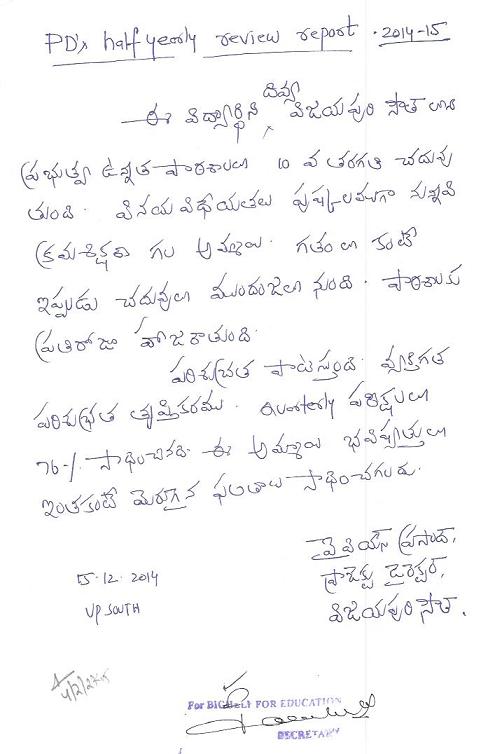 PD's half yearly review report. 2014-15
దివ్య
ఈ విద్యార్థిని × విజయపురి సౌత్ లోని
ప్రభుత్వ ఉన్నత పాఠశాలలో 10 వ తరగతి చదువు
తుంది. వినయవిధేయతలు పుష్కలముగా నున్నవి
క్రమశిక్షణ గల అమ్మాయి. గతంలో కంటే
ఇప్పుడు చదువులో ముందంజలో నుంది. పాఠశాలకు
ప్రతిరోజు హాజరౌతుంది.
పరిశుభ్రత పాటిస్తుంది. వ్యక్తిగత
పరిశుభ్రత తృప్తికరము. Quarterly పరీక్షలలో
76-/. సాధించినది. ఈ అమ్మాయి భవిష్యత్తులో
ఇంతకంటే మెరుగైన ఫలితాలు సాధించగలదు.
వై వియస్ ప్రసాద్,
ప్రాజెక్టు డైరెక్టర్,
విజయపురి సౌత్.
15.12.2014
VP SOUTH
For BIGHELP FOR EDUCATION
SECRETARY